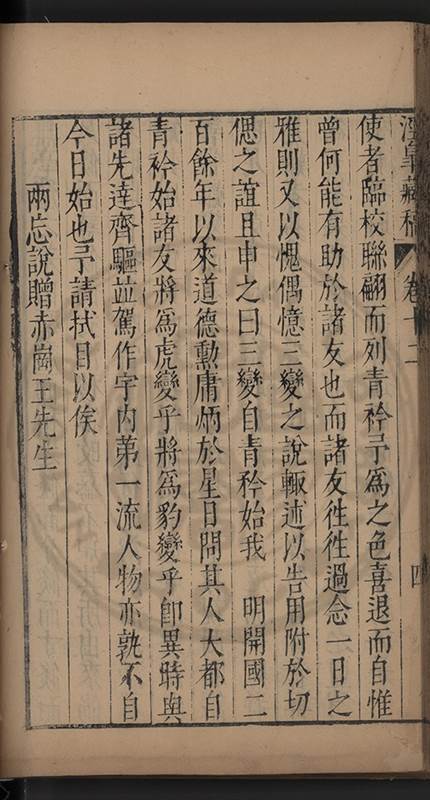 涇臯藏稿 卷十二 四
使者臨校聯翩而列青衿予爲之色喜退而自惟
曾何能有助於諸友也而諸友徃徃過念一日之
雅則又以愧偶憶三變之說輙述以告用附於切
偲之誼且申之曰三變自青衿始我 明開國二
百餘年以來道德勳庸炳於星日問其人大都自
青衿始諸友將爲虎變乎將爲豹變乎卽異時與
諸先達齊驅並駕作宇内第一流人物亦孰不自
今日始也予請拭目以俟
兩忘說贈赤崗王先生